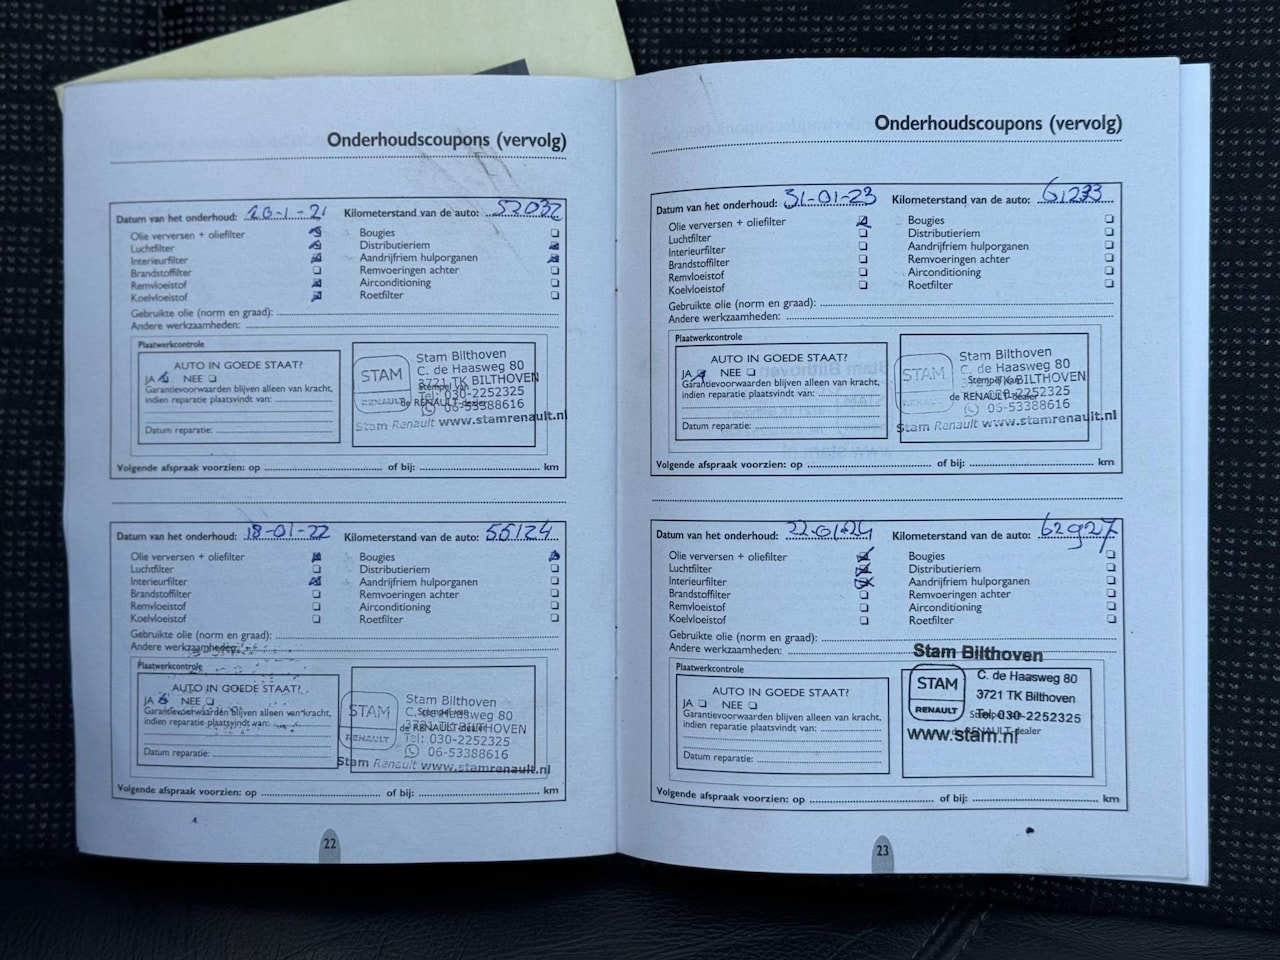 Onderhoudscoupons (vervolg)
Datum van het onderhoud: 20-1-21 Kilometerstand van de auto: 52032
Olie verversen + oliefilter Bougies
Luchtfilter Distributieriem
Interieurfilter Aandrijfriem hulporganen
Brandstoffilter Remvoeringen achter
Remvloeistof Airconditioning
Koelvloeistof Roetfilter
Gebruikte olie (norm en graad):
Andere werkzaamheden:
Plaatwerkcontrole
AUTO IN GOEDE STAAT?
JA NEE
Garantievoorwaarden blijven alleen van kracht,
indien reparatie plaatsvindt van:
Datum reparatie:
STAM
RENAULT
Stam Bilthoven
C. de Haasweg 80
3721 TK BILTHOVEN
Stempel van
Tel: 030-2252325
de RENAULT-dealer
06-53388616
Stam Renault www.stamrenault.nl
Volgende afspraak voorzien: op of bij: km
Datum van het onderhoud: 18-01-22 Kilometerstand van de auto: 55124
Olie verversen + oliefilter Bougies
Luchtfilter Distributieriem
Interieurfilter Aandrijfriem hulporganen
Brandstoffilter Remvoeringen achter
Remvloeistof Airconditioning
Koelvloeistof Roetfilter
Gebruikte olie (norm en graad):
Andere werkzaamheden:
Plaatwerkcontrole
AUTO IN GOEDE STAAT?
JA NEE
Garantievoorwaarden blijven alleen van kracht,
indien reparatie plaatsvindt van:
Datum reparatie:
STAM
RENAULT
Stam Bilthoven
C. de Haasweg 80
Stempel van
3721 TK BILTHOVEN
de RENAULT-dealer
Tel: 030-2252325
06-53388616
Stam Renault www.stamrenault.nl
Volgende afspraak voorzien: op of bij: km
22
Onderhoudscoupons (vervolg)
Datum van het onderhoud: 31-01-23 Kilometerstand van de auto: 61233
Olie verversen + oliefilter Bougies
Luchtfilter Distributieriem
Interieurfilter Aandrijfriem hulporganen
Brandstoffilter Remvoeringen achter
Remvloeistof Airconditioning
Koelvloeistof Roetfilter
Gebruikte olie (norm en graad):
Andere werkzaamheden:
Plaatwerkcontrole
AUTO IN GOEDE STAAT?
JA NEE
Garantievoorwaarden blijven alleen van kracht,
indien reparatie plaatsvindt van:
Datum reparatie:
STAM
RENAULT
Stam Bilthoven
C. de Haasweg 80
3721 TK BILTHOVEN
Stempel van
Tel: 030-2252325
de RENAULT-dealer
06-53388616
Stam Renault www.stamrenault.nl
Volgende afspraak voorzien: op of bij: km
Datum van het onderhoud: 22-01-24 Kilometerstand van de auto: 62927
Olie verversen + oliefilter Bougies
Luchtfilter Distributieriem
Interieurfilter Aandrijfriem hulporganen
Brandstoffilter Remvoeringen achter
Remvloeistof Airconditioning
Koelvloeistof Roetfilter
Gebruikte olie (norm en graad):
Andere werkzaamheden:
Plaatwerkcontrole
AUTO IN GOEDE STAAT?
JA NEE
Garantievoorwaarden blijven alleen van kracht,
indien reparatie plaatsvindt van:
Datum reparatie:
Stam Bilthoven
STAM
RENAULT
C. de Haasweg 80
3721 TK Bilthoven
Tel. 030-2252325
de RENAULT-dealer
www.stam.nl
Volgende afspraak voorzien: op of bij: km
23